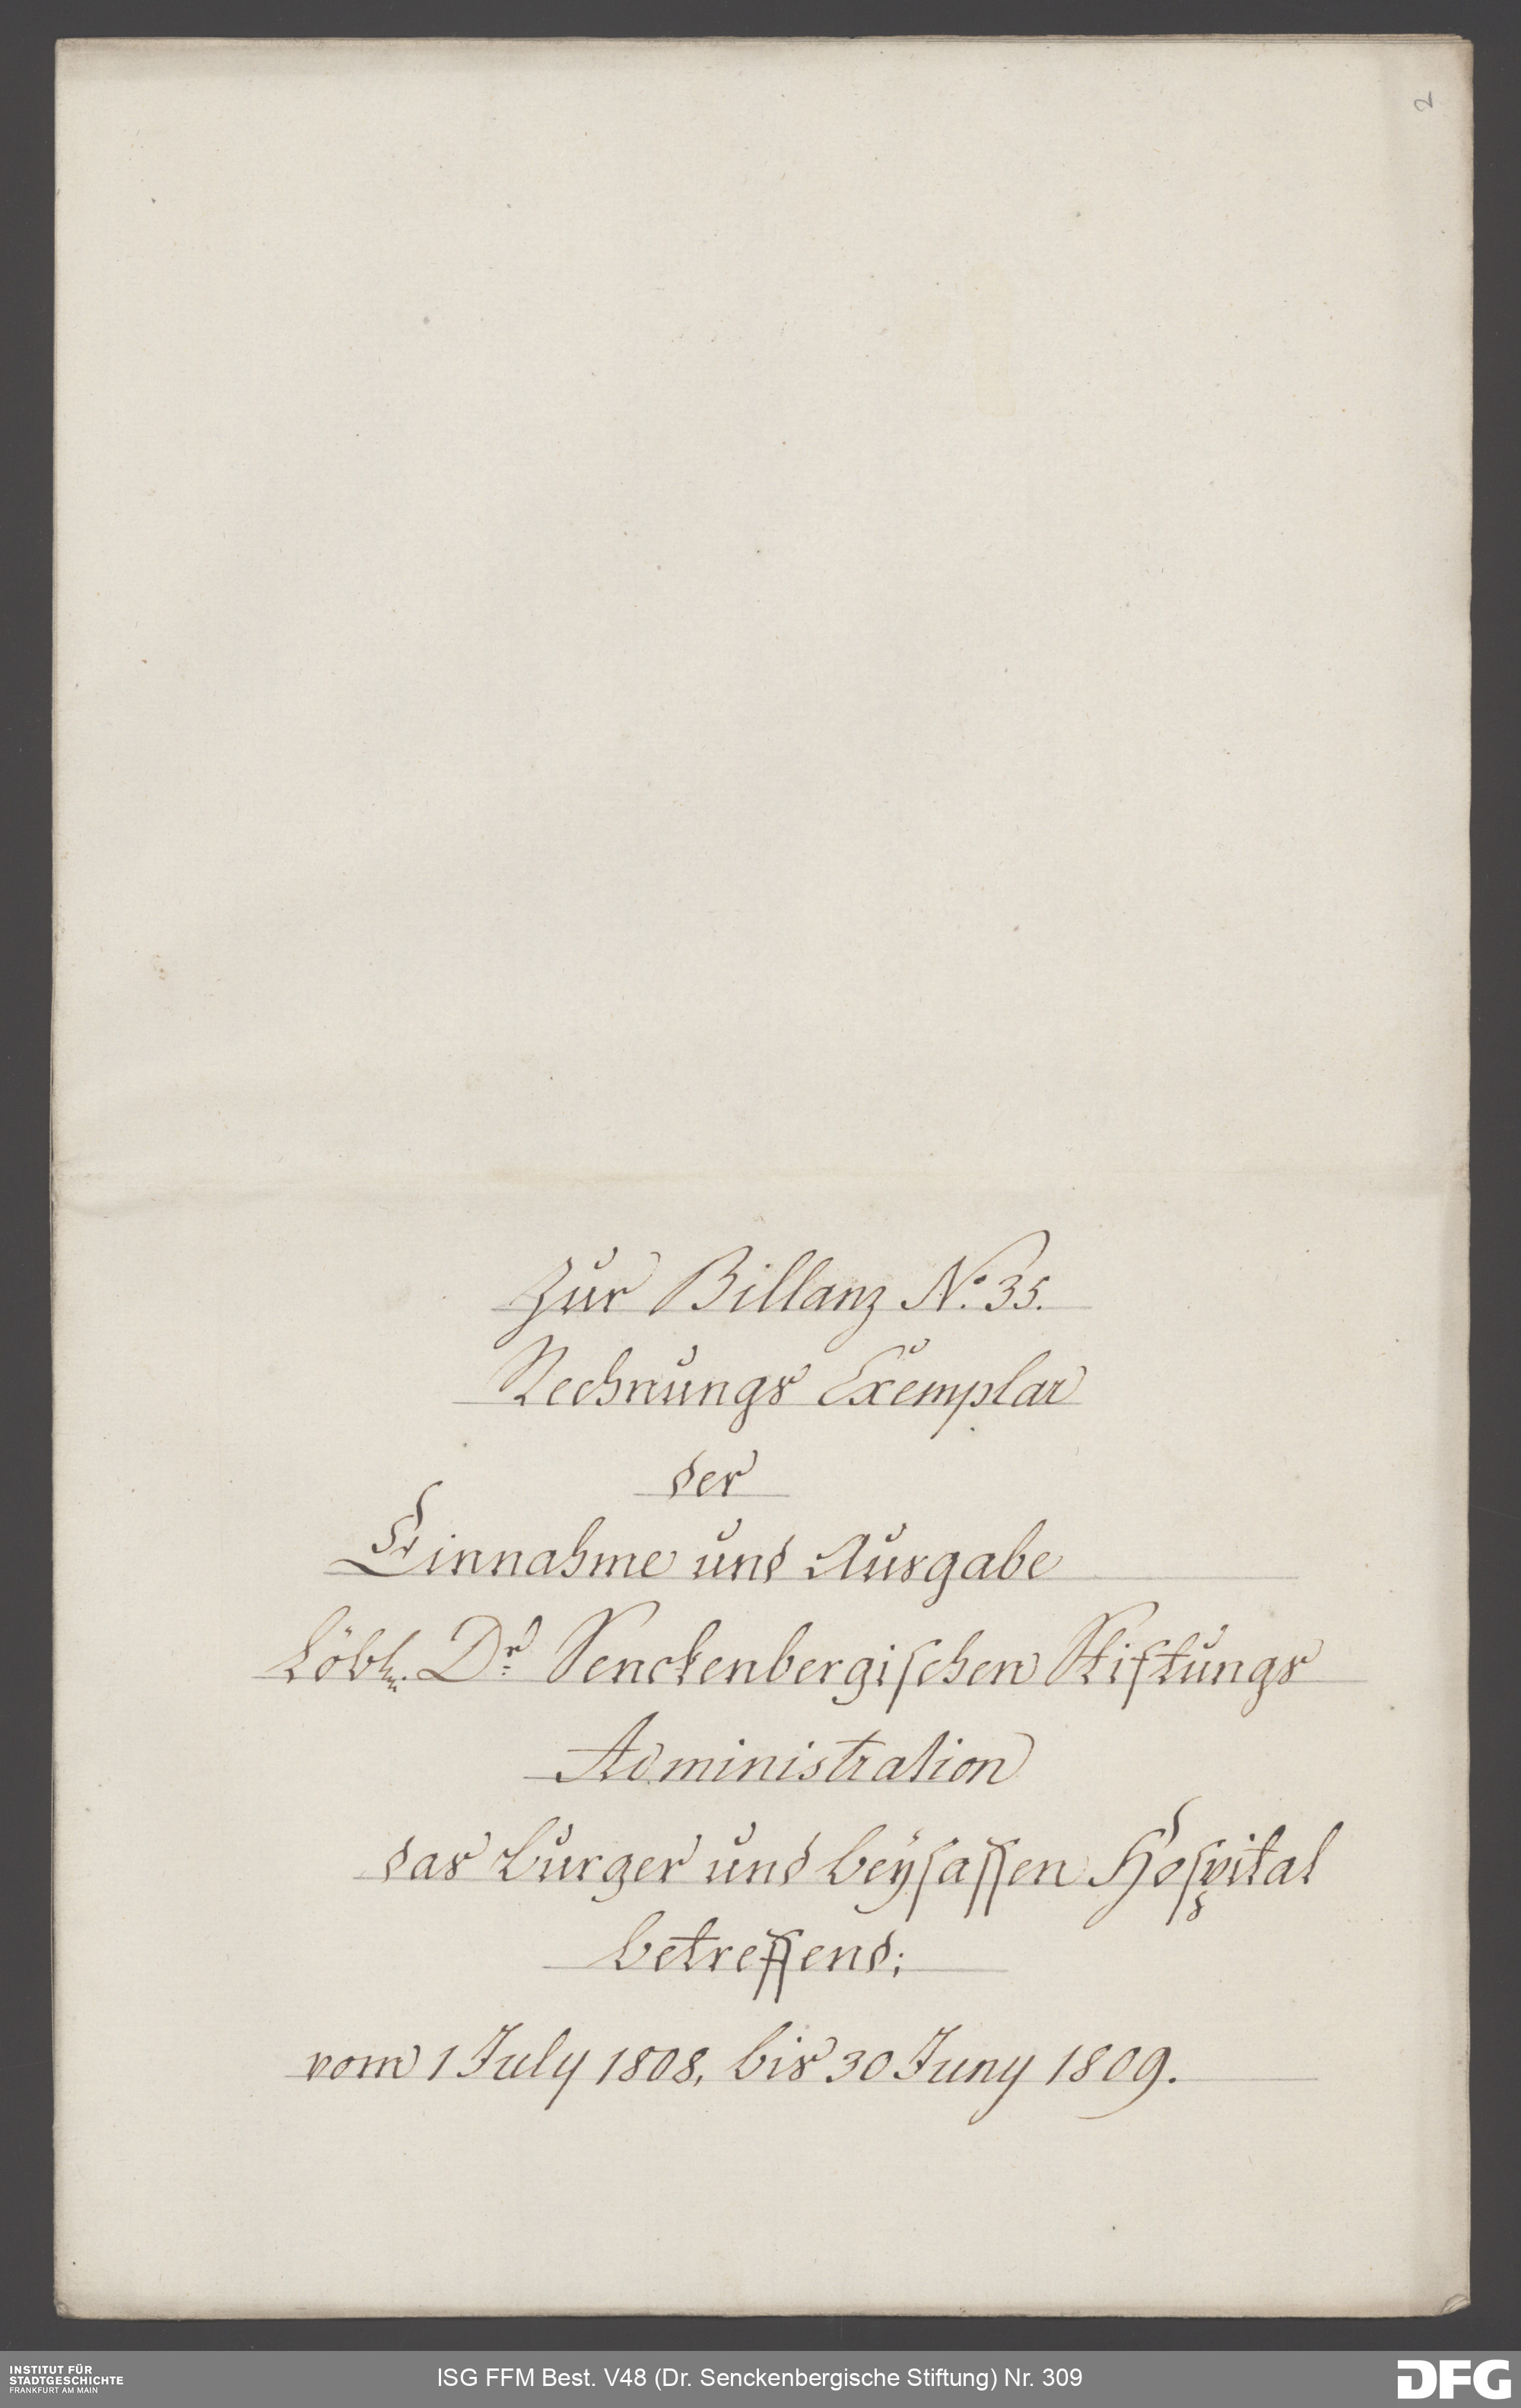 2
Zur Billanz No. 35.
Rechnungs Exemplar
der
Einnahme und Ausgabe
Löbln. Dr. Senckenbergischen Stiftungs
Administration
das burger und beÿsassen Hospital
betreffend;
vom 1 July 1808, bis 30 Juny 1809.
INSTITUT FÜR
STADTGESCHICHTE
FRANKFURT AM MAIN
ISG FFM Best. V48 (Dr. Senckenbergische Stiftung) Nr. 309
DFG